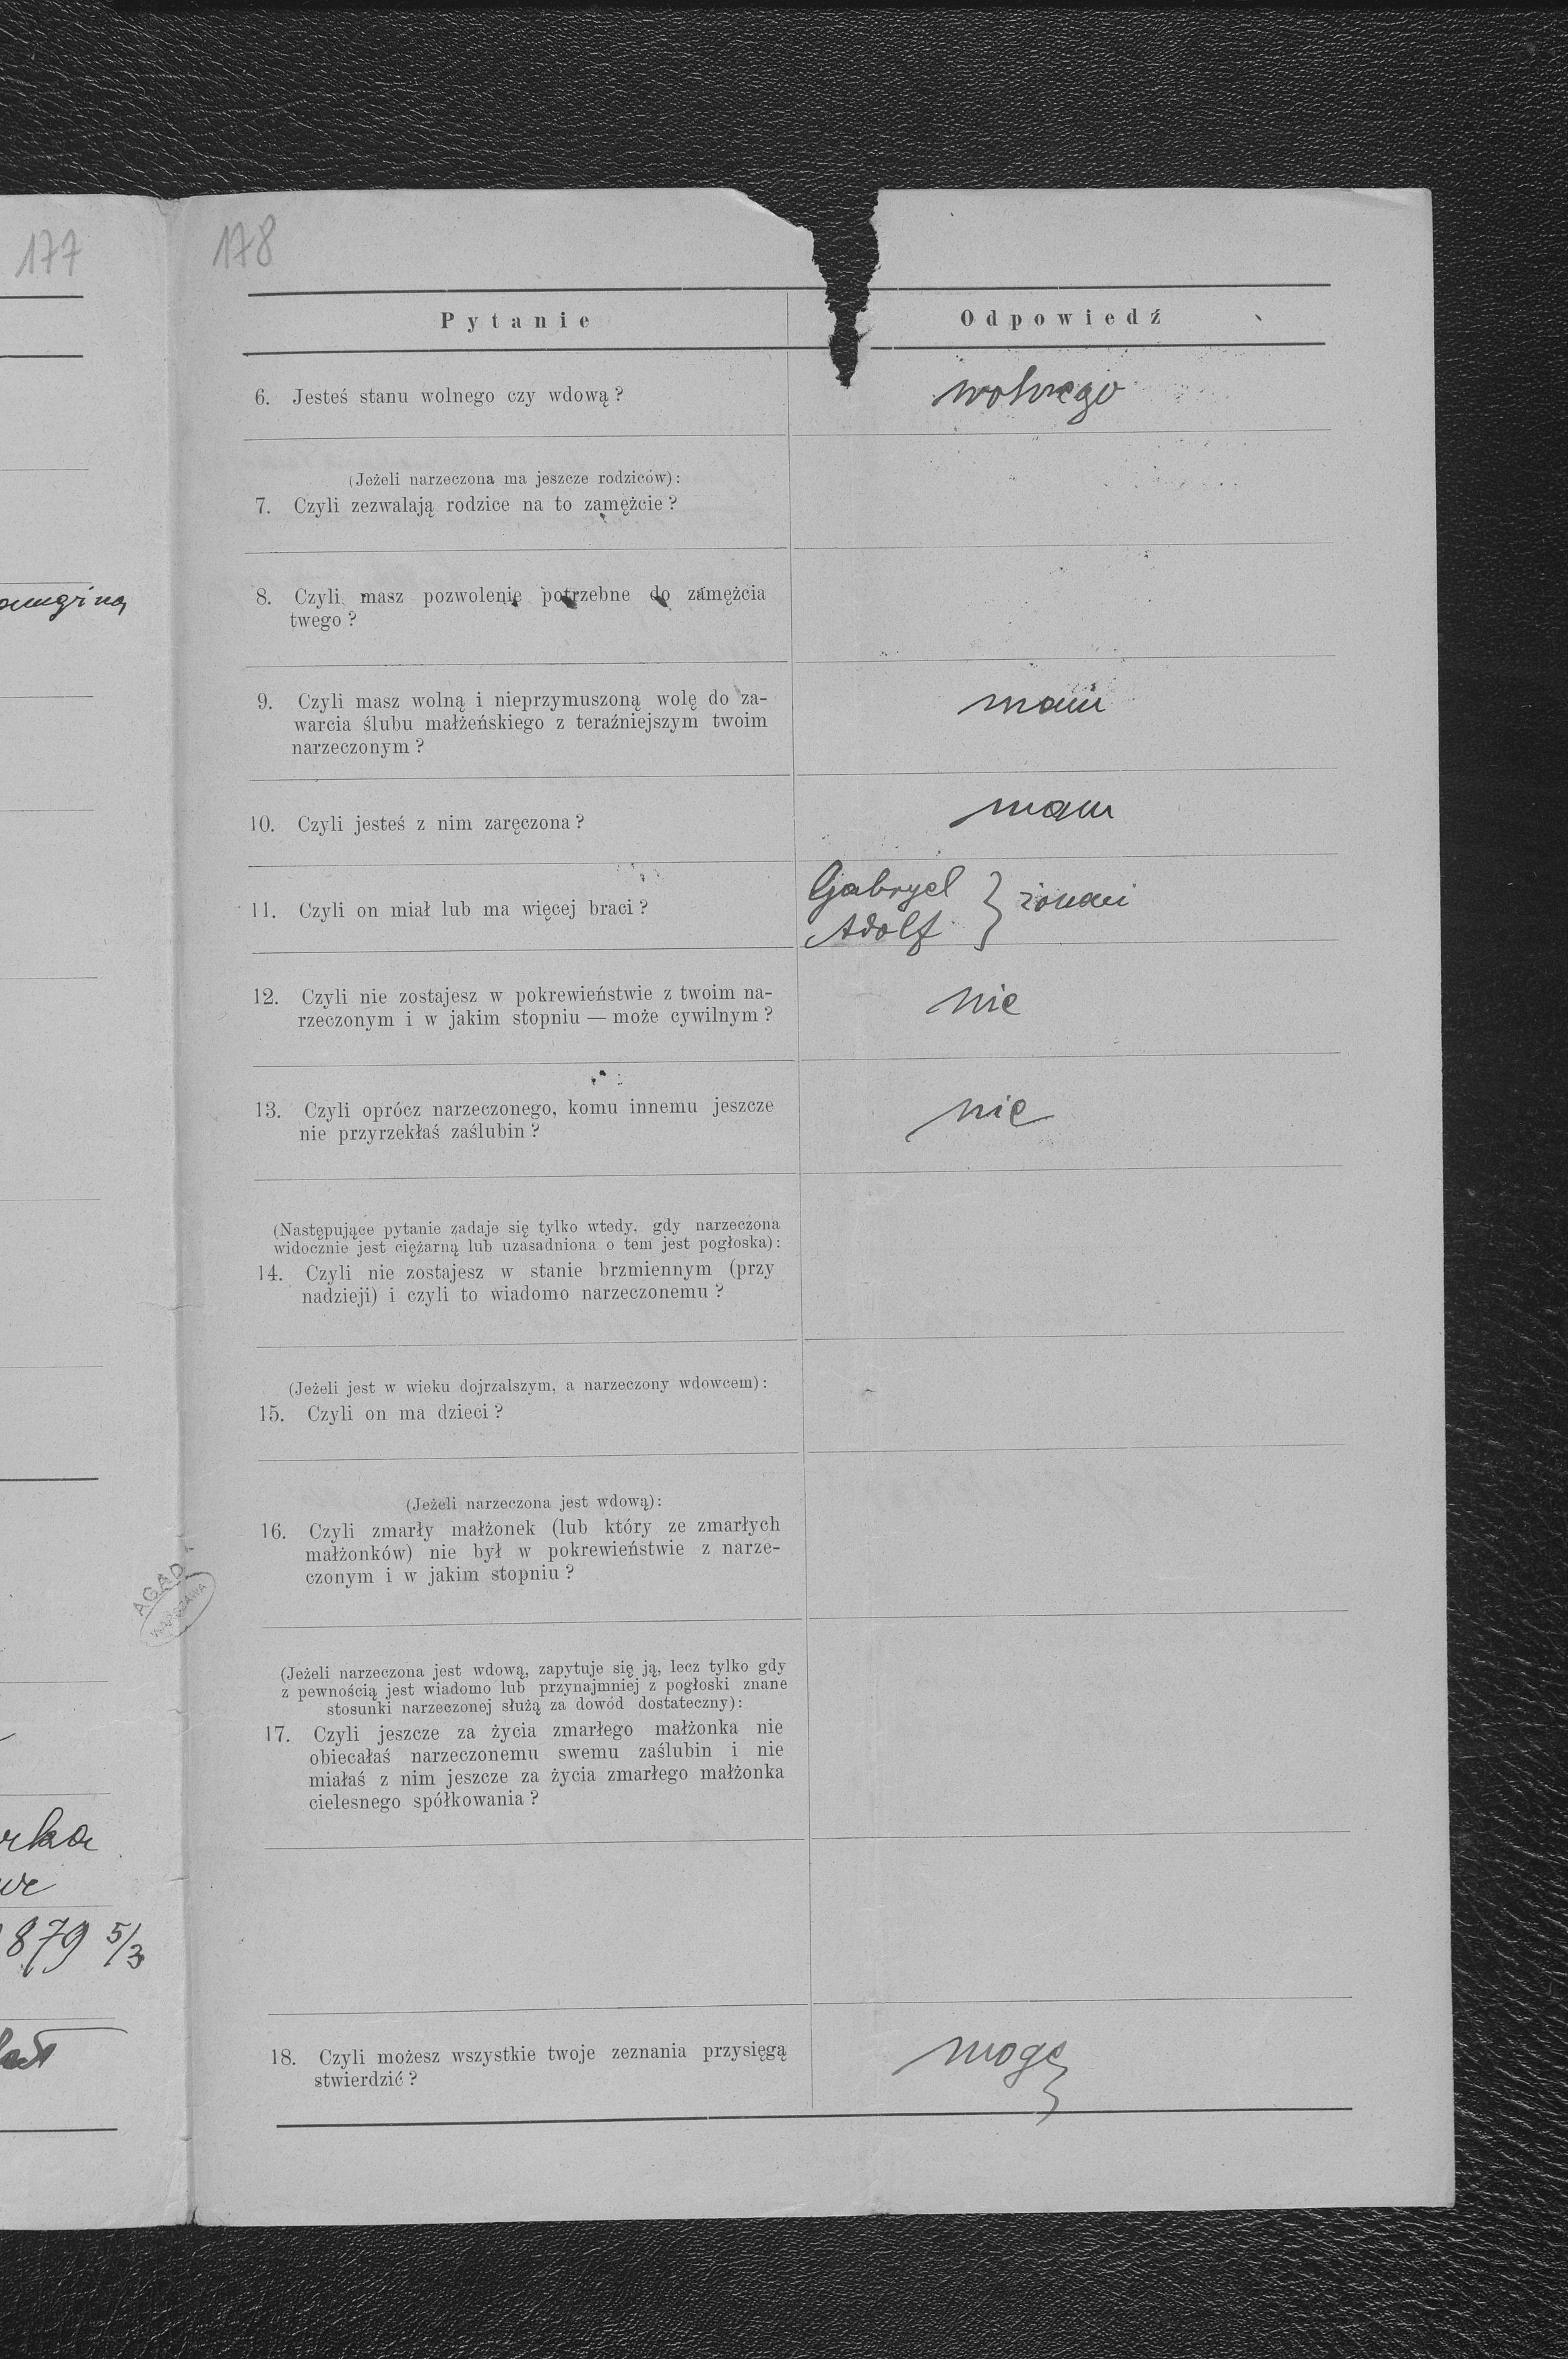 177
178
Pytanie
Odpowiedź
6. Jesteś stanu wolnego czy wdową?
wolnego
(Jeżeli narzeczona ma jeszcze rodziców):
7. Czyli zezwalają rodzice na to zamężcie?
8. Czyli masz pozwolenie potrzebne do zamężcia
twego?
9. Czyli masz wolną i nieprzymuszoną wolę do za-
warcia ślubu małżeńskiego z teraźniejszym twoim
narzeczonym?
mam
10. Czyli jesteś z nim zaręczona?
mam
11. Czyli on miał lub ma więcej braci?
Gabryel
Adolf
12. Czyli nie zostajesz w pokrewieństwie z twoim na-
rzeczonym i w jakim stopniu — może cywilnym?
nie
13. Czyli oprócz narzeczonego, komu innemu jeszcze
nie przyrzekłaś zaślubin?
nie
(Następujące pytanie zadaje się tylko wtedy, gdy narzeczona
widocznie jest ciężarną lub uzasadniona o tem jest pogłoska):
14. Czyli nie zostajesz w stanie brzmiennym (przy
nadzieji) i czyli to wiadomo narzeczonemu?
(Jeżeli jest w wieku dojrzalszym, a narzeczony wdowcem):
15. Czyli on ma dzieci?
(Jeżeli narzeczona jest wdową):
16. Czyli zmarły małżonek (lub który ze zmarłych
małżonków) nie był w pokrewieństwie z narze-
czonym i w jakim stopniu?
AGAD
WARSZAWA
(Jeżeli narzeczona jest wdową, zapytuje się ją, lecz tylko gdy
z pewnością jest wiadomo lub przynajmniej z pogłoski znane
stosunki narzeczonej służą za dowód dostateczny):
17. Czyli jeszcze za życia zmarłego małżonka nie
obiecałaś narzeczonemu swemu zaślubin i nie
miałaś z nim jeszcze za życia zmarłego małżonka
cielesnego spółkowania?
879 5/3
18. Czyli możesz wszystkie twoje zeznania przysięgą
stwierdzić?
mogę